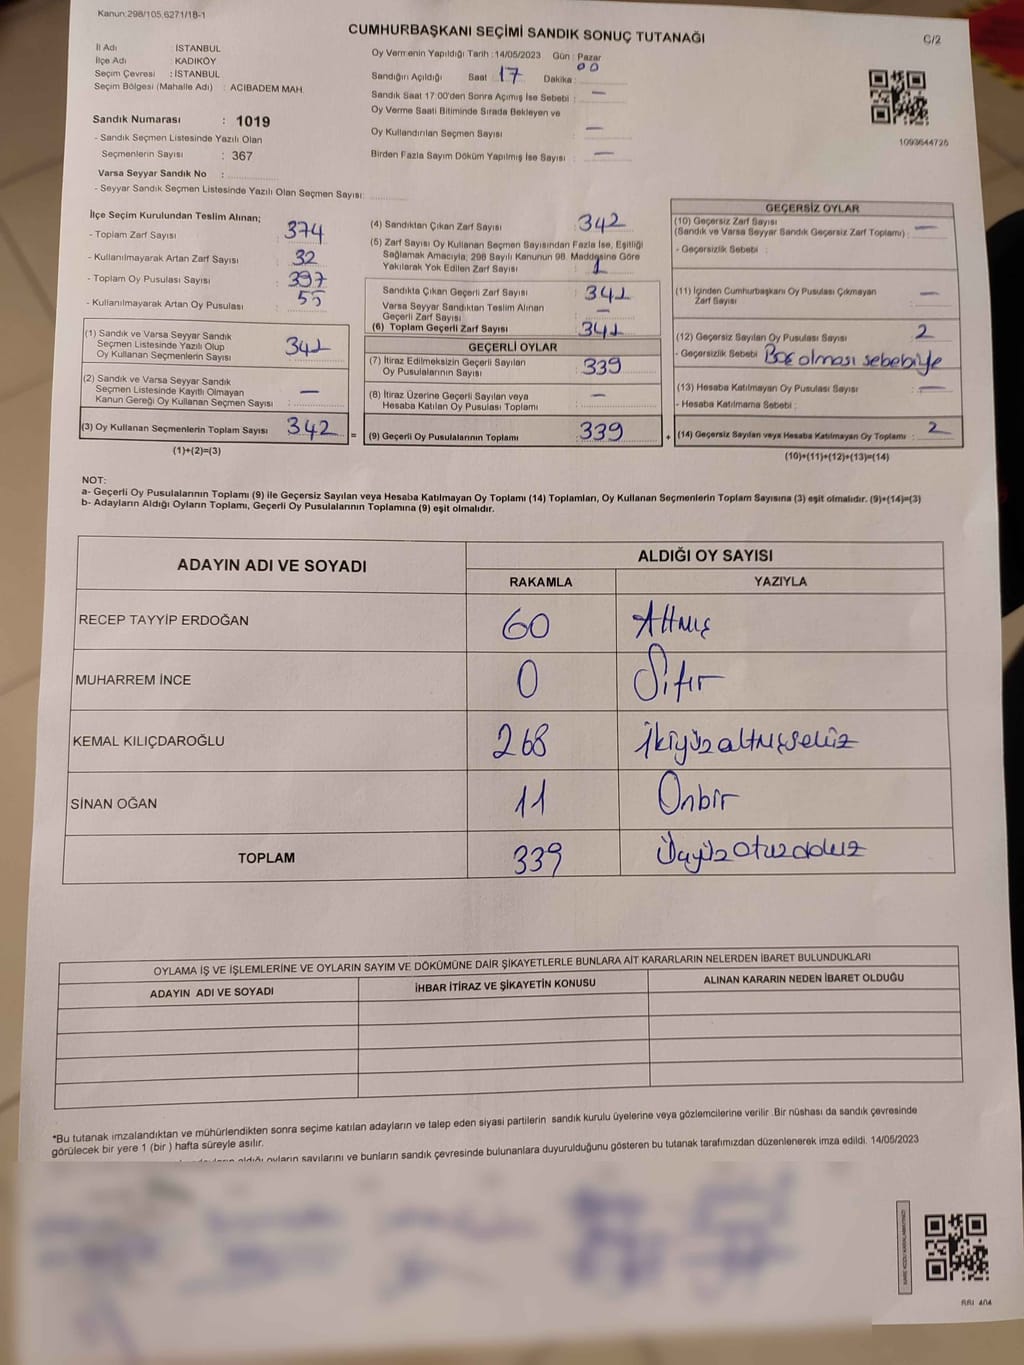 Kanun:298/105,6271/18-1
CUMHURBAŞKANI SEÇİMİ SANDIK SONUÇ TUTANAĞI
C/2
İl Adı : İSTANBUL
İlçe Adı : KADIKÖY
Seçim Çevresi : İSTANBUL
Seçim Bölgesi (Mahalle Adı) : ACIBADEM MAH.
Sandık Numarası : 1019
- Sandık Seçmen Listesinde Yazılı Olan
Seçmenlerin Sayısı : 367
Varsa Seyyar Sandık No :
- Seyyar Sandık Seçmen Listesinde Yazılı Olan Seçmen Sayısı:
Oy Vermenin Yapıldığı Tarih : 14/05/2023 Gün : Pazar
Sandığın Açıldığı Saat 17 Dakika : 00
Sandık Saat 17:00'den Sonra Açımış İse Sebebi : —
Oy Verme Saati Bitiminde Sırada Bekleyen ve
Oy Kullandırılan Seçmen Sayısı : —
Birden Fazla Sayım Döküm Yapılmış İse Sayısı : —
1093644725
İlçe Seçim Kurulundan Teslim Alınan;
- Toplam Zarf Sayısı : 374
- Kullanılmayarak Artan Zarf Sayısı : 32
- Toplam Oy Pusulası Sayısı : 397
- Kullanılmayarak Artan Oy Pusulası : 55
(1) Sandık ve Varsa Seyyar Sandık
Seçmen Listesinde Yazılı Olup
Oy Kullanan Seçmenlerin Sayısı : 342
(2) Sandık ve Varsa Seyyar Sandık
Seçmen Listesinde Kayıtlı Olmayan
Kanun Gereği Oy Kullanan Seçmen Sayısı : —
(3) Oy Kullanan Seçmenlerin Toplam Sayısı : 342 =
(1)+(2)=(3)
(4) Sandıktan Çıkan Zarf Sayısı : 342
(5) Zarf Sayısı Oy Kullanan Seçmen Sayısından Fazla İse, Eşitliği
Sağlamak Amacıyla, 298 Sayılı Kanunun 98. Maddesine Göre
Yakılarak Yok Edilen Zarf Sayısı : 1
Sandıkta Çıkan Geçerli Zarf Sayısı : 341
Varsa Seyyar Sandıktan Teslim Alınan
Geçerli Zarf Sayısı : —
(6) Toplam Geçerli Zarf Sayısı : 341
GEÇERLİ OYLAR
(7) İtiraz Edilmeksizin Geçerli Sayılan
Oy Pusulalarının Sayısı : 339
(8) İtiraz Üzerine Geçerli Sayılan veya
Hesaba Katılan Oy Pusulası Toplamı : —
(9) Geçerli Oy Pusulalarının Toplamı : 339 +
GEÇERSİZ OYLAR
(10) Geçersiz Zarf Sayısı
(Sandık ve Varsa Seyyar Sandık Geçersiz Zarf Toplamı) : —
- Geçersizlik Sebebi :
(11) İçinden Cumhurbaşkanı Oy Pusulası Çıkmayan
Zarf Sayısı : —
(12) Geçersiz Sayılan Oy Pusulası Sayısı : 2
- Geçersizlik Sebebi : Boş olması sebebiyle
(13) Hesaba Katılmayan Oy Pusulası Sayısı : —
- Hesaba Katılmama Sebebi :
(14) Geçersiz Sayılan veya Hesaba Katılmayan Oy Toplamı : 2
(10)+(11)+(12)+(13)=(14)
NOT:
a- Geçerli Oy Pusulalarının Toplamı (9) ile Geçersiz Sayılan veya Hesaba Katılmayan Oy Toplamı (14) Toplamları, Oy Kullanan Seçmenlerin Toplam Sayısına (3) eşit olmalıdır. (9)+(14)=(3)
b- Adayların Aldığı Oyların Toplamı, Geçerli Oy Pusulalarının Toplamına (9) eşit olmalıdır.
ADAYIN ADI VE SOYADI ALDIĞI OY SAYISI
RAKAMLA YAZIYLA
RECEP TAYYİP ERDOĞAN 60 Altmış
MUHARREM İNCE 0 Sıfır
KEMAL KILIÇDAROĞLU 268 İkiyüzaltmışsekiz
SİNAN OĞAN 11 Onbir
TOPLAM 339 Üçyüzotuzdokuz
OYLAMA İŞ VE İŞLEMLERİNE VE OYLARIN SAYIM VE DÖKÜMÜNE DAİR ŞİKAYETLERLE BUNLARA AİT KARARLARIN NELERDEN İBARET BULUNDUKLARI
ADAYIN ADI VE SOYADI İHBAR İTİRAZ VE ŞİKAYETİN KONUSU ALINAN KARARIN NEDEN İBARET OLDUĞU
*Bu tutanak imzalandıktan ve mühürlendikten sonra seçime katılan adayların ve talep eden siyasi partilerin sandık kurulu üyelerine veya gözlemcilerine verilir .Bir nüshası da sandık çevresinde
görülecek bir yere 1 (bir ) hafta süreyle asılır.
aldığı oyların sayılarını ve bunların sandık çevresinde bulunanlara duyurulduğunu gösteren bu tutanak tarafımızdan düzenlenerek imza edildi. 14/05/2023